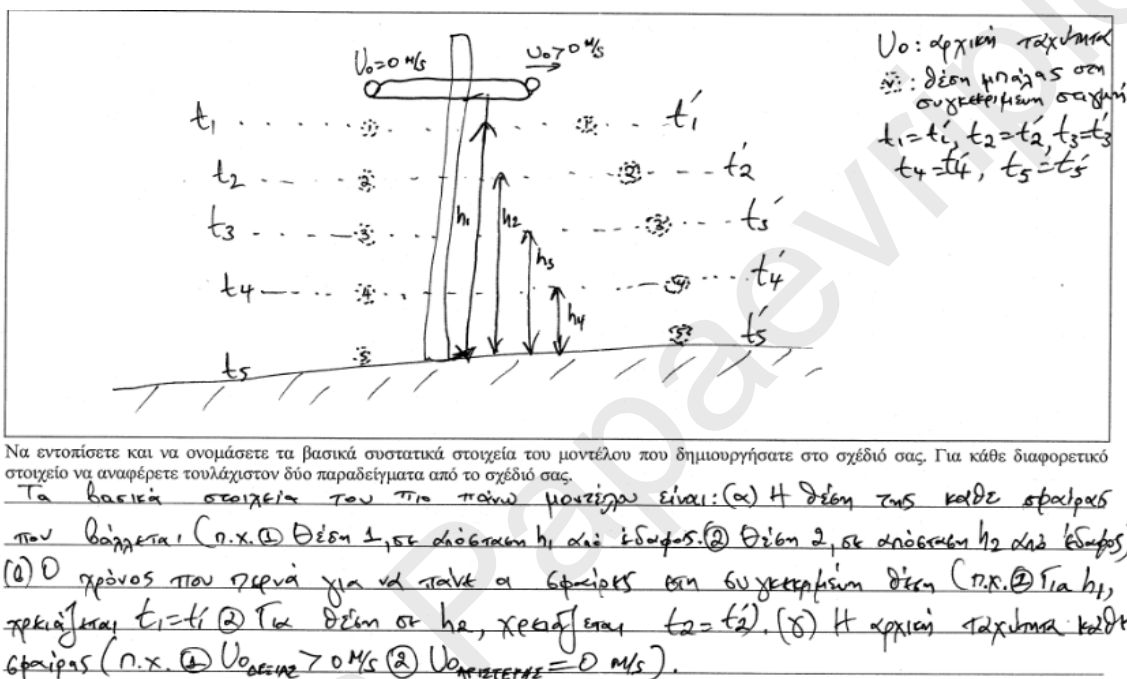 U₀=0 m/s
U₀>0 m/s
U₀: αρχική ταχύτητα
Ν: θέση μπάλας στη
συγκεκριμένη στιγμή
t₁=t₁́, t₂=t₂́, t₃=t₃́
t₄=t₄́, t₅=t₅́
t₁ 1 1 t₁́
t₂ 2 h₁ h₂ 2 t₂́
t₃ 3 h₃ 3 t₃́
t₄ 4 h₄ 4 t₄́
t₅ 5 5 t₅́
Να εντοπίσετε και να ονομάσετε τα βασικά συστατικά στοιχεία του μοντέλου που δημιουργήσατε στο σχέδιό σας. Για κάθε διαφορετικό
στοιχείο να αναφέρετε τουλάχιστον δύο παραδείγματα από το σχέδιό σας.
Τα βασικά στοιχεία του πιο πάνω μοντέλου είναι: (α) Η θέση της κάθε σφαίρας
που βάλλεται (π.χ. ① Θέση 1, σε απόσταση h₁ από έδαφος. ② Θέση 2, σε απόσταση h₂ από έδαφος)
Ο χρόνος που περνά για να πάνε α σφαίρες στη συγκεκριμένη θέση (π.χ. ① Για h₁,
χρειάζεται t₁=t₁́ ② Για θέση σε h₂, χρειάζεται t₂=t₂́). (γ) Η αρχική ταχύτητα κάθε
σφαίρας (π.χ. ① U₀ΔΕΞΙΑΣ > 0 m/s ② U₀ΑΡΙΣΤΕΡΗΣ = 0 m/s).
Papaevripid